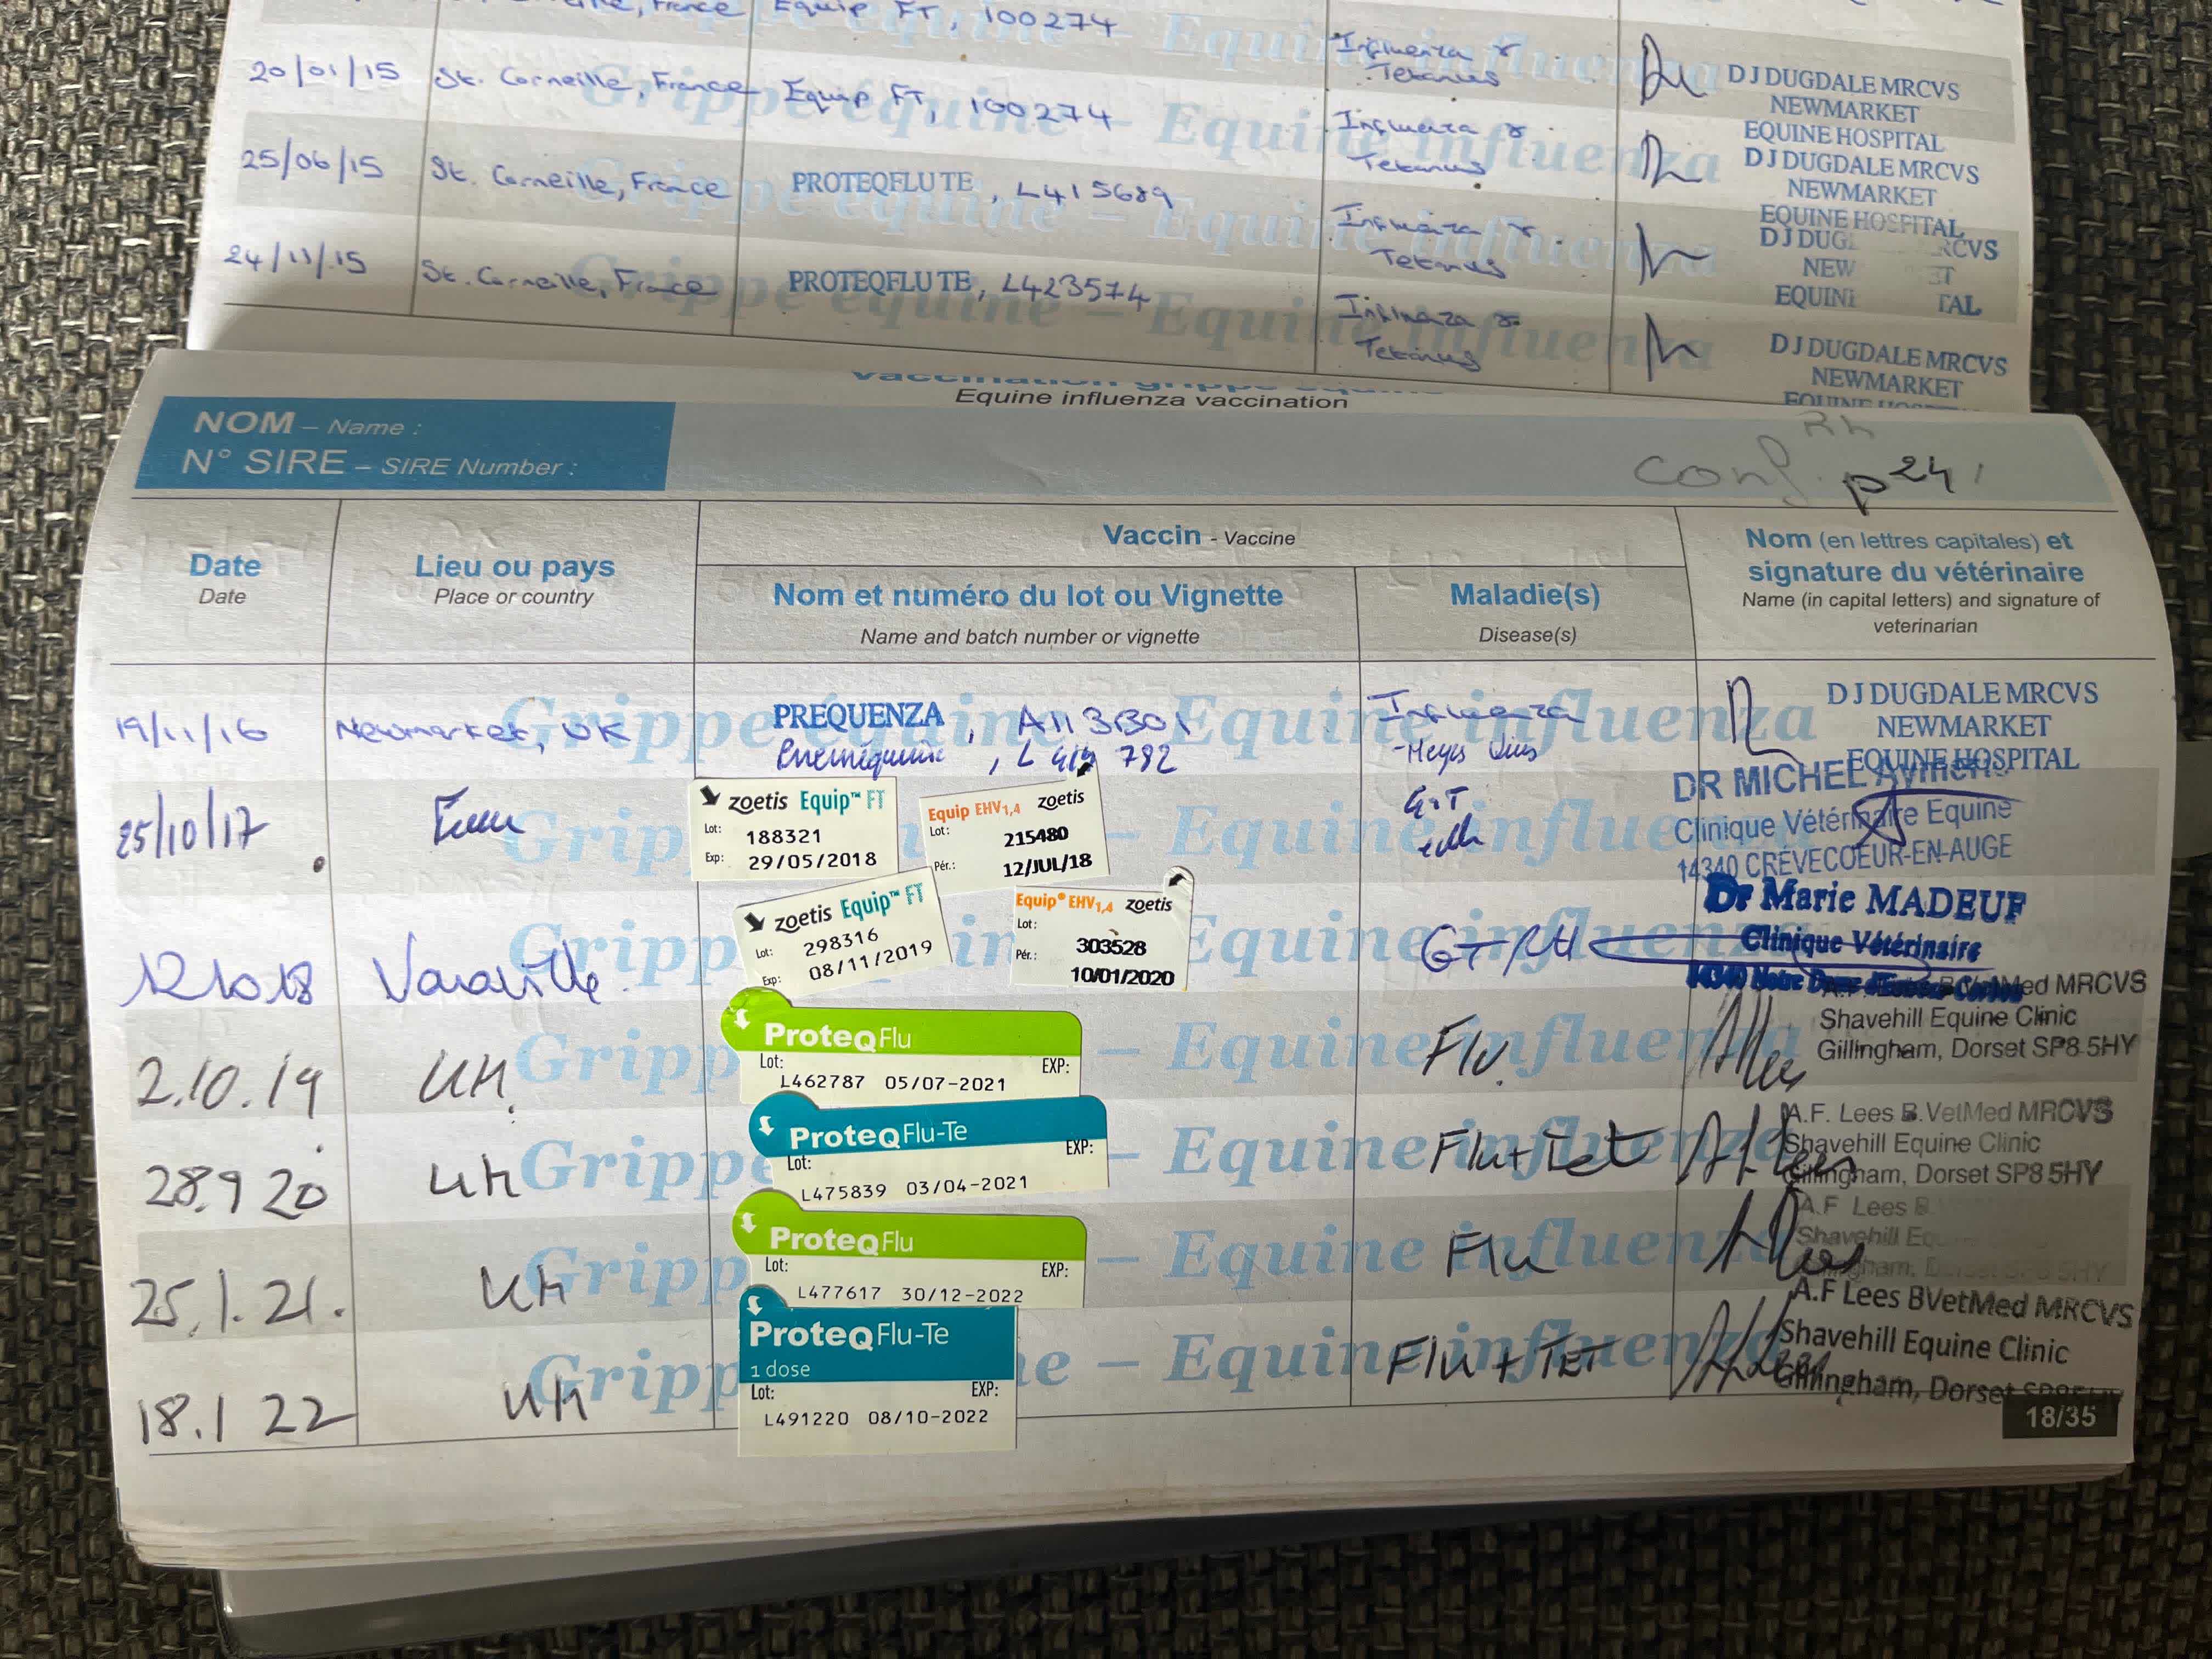 France Equip FT, 100274
Influenza &
Tetanus
20/01/15 St. Corneille, France Equip FT, 100274
Influenza &
Tetanus
DJ DUGDALE MRCVS
NEWMARKET
EQUINE HOSPITAL
25/06/15 St. Corneille, France PROTEQFLU TE, L415689
Influenza &
Tetanus
DJ DUGDALE MRCVS
NEWMARKET
EQUINE HOSPITAL
24/11/15 St. Corneille, France PROTEQFLU TE, L423574
Influenza &
Tetanus
DJ DUG RCVS
NEW ET
EQUINE TAL
DJ DUGDALE MRCVS
NEWMARKET
Grippe équine – Equine influenza
Grippe équine – Equine influenza
Grippe équine – Equine influenza
Grippe équine – Equine influenza
Vaccination grippe équine
Equine influenza vaccination
NOM – Name :
N° SIRE – SIRE Number :
Rh
conf. p24
Date
Date
Lieu ou pays
Place or country
Vaccin - Vaccine
Nom et numéro du lot ou Vignette
Name and batch number or vignette
Maladie(s)
Disease(s)
Nom (en lettres capitales) et
signature du vétérinaire
Name (in capital letters) and signature of
veterinarian
19/11/16 Newmarket, UK PREQUENZA, A113B01 Influenza
DJ DUGDALE MRCVS
NEWMARKET
EQUINE HOSPITAL
, L 419 792
25/10/17
zoetis Equip™ FT
Lot: 188321
Exp: 29/05/2018
Equip EHV1,4 zoetis
Lot: 215480
Pér.: 12/JUL/18
G.T
DR MICHEL
Clinique Vétérinaire Equine
14340 CRÈVECOEUR-EN-AUGE
12 10 18 Varaville
zoetis Equip™ FT
Lot: 298316
Exp: 08/11/2019
Equip® EHV1,4 zoetis
Lot: 303528
Pér.: 10/01/2020
GT RH
Dr Marie MADEUF
Clinique Vétérinaire
14340 Notre Dame
2.10.19 UK
ProteqFlu
Lot: EXP:
L462787 05/07-2021
Flu.
A.F. Lees B.VetMed MRCVS
Shavehill Equine Clinic
Gillingham, Dorset SP8 5HY
28.9 20 UK
ProteqFlu-Te
Lot: EXP:
L475839 03/04-2021
Flu+Tet
A.F. Lees B.VetMed MRCVS
Shavehill Equine Clinic
Gillingham, Dorset SP8 5HY
25.1.21. UK
ProteqFlu
Lot: EXP:
L477617 30/12-2022
Flu
A.F Lees B
Shavehill Eq
18.1 22 UK
ProteqFlu-Te
1 dose
Lot: EXP:
L491220 08/10-2022
Flu + TET
A.F Lees BVetMed MRCVS
Shavehill Equine Clinic
Gillingham, Dorset
Grippe équine – Equine influenza
18/35